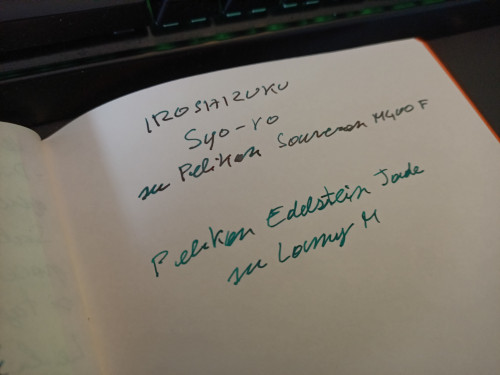 IROSHIZUKU
Syo-ro
su Pelikan Souveran M400 F
Pelikan Edelstein Jade
su Lamy M